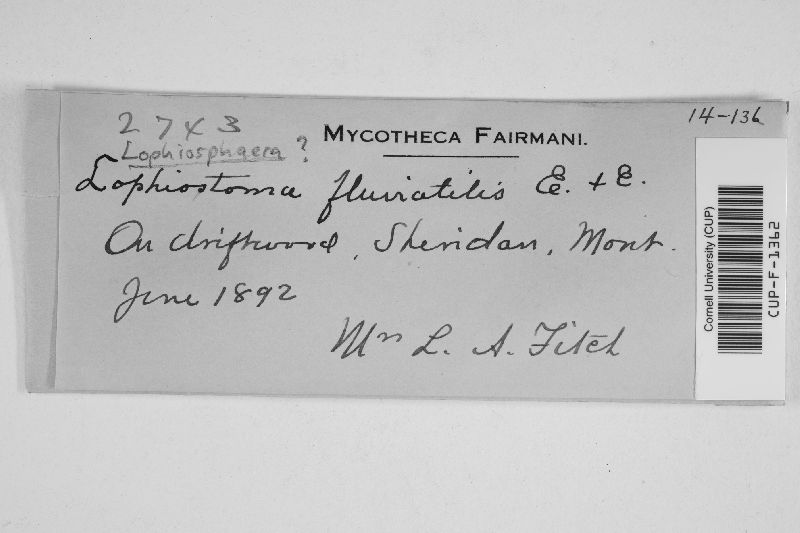 2743
14-136
MYCOTHECA FAIRMANI.
Lophiosphaera ?
Lophiostoma fluviatilis E. + E.
On driftwood, Sheridan, Mont.
June 1892
Mrs L. A. Fitch
Cornell University (CUP)
CUP-F-1362